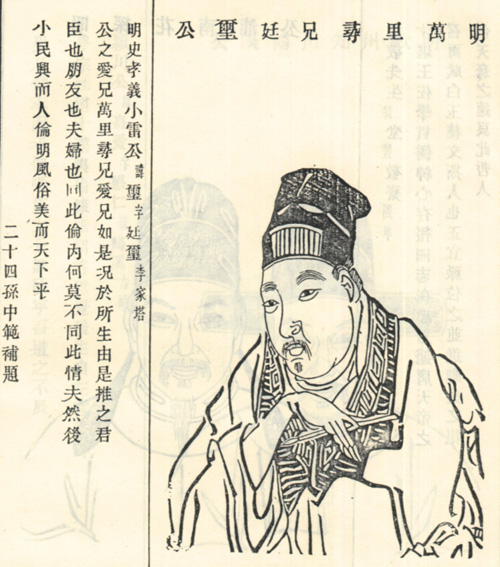 明萬里尋兄廷璽公
明史孝義小雷公諱璽字廷璽李家塔
公之愛兄萬里尋兄愛兄如是况於所生由是推之君
臣也朋友也夫婦也同此倫內何莫不同此情夫然後
小民興而人倫明風俗美而天下平
二十四孫中範補題